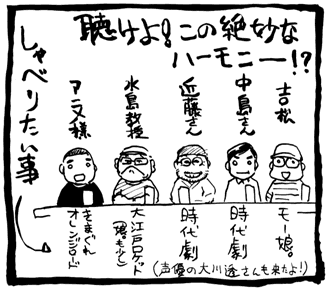 聴けよ!この絶妙な
ハーモニー!?
吉松
中島さん
近藤さん
水島教授
アニメ様
しゃべりたい事
モー娘。
時代劇
時代劇
大江戸ロケット
(娘。も少し)
きまぐれ
オレンジロード
(声優の大川透さんも来たよ!)